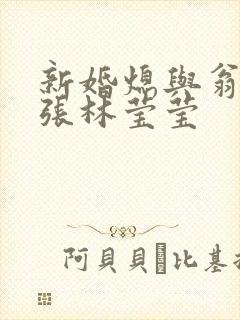 新婚熄與翁
張林莹莹
阿貝貝 比基